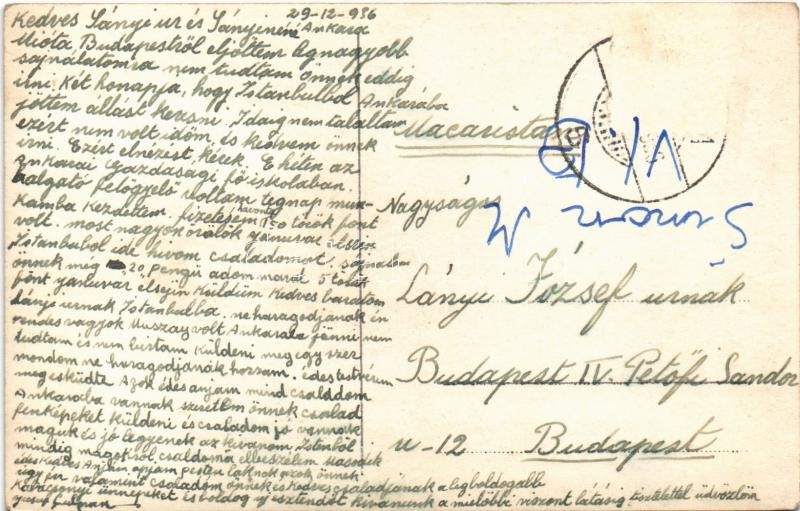 29-12-936
Kedves Lányi ur és Lányinéni Ankara
Mióta Budapestről eljöttem legnagyobb
sajnálatomra nem tudtam önnek eddig
irni. Két honapja, hogy Istanbulbol Ankarába
jöttem állást keresni. Idaig nem találtam
ezért nem volt idöm és kedvem önnek
irni. Ezért elnézést kérek. E héten az
ankarai Gazdasagi föiskolaban
halgató felögyelö voltam tegnap mun-
kamba kezdettem. fizetésem havonta török font
volt. most nagyon örülök január elsején
Istanbulbol ide hivom csaladomat. sajnalom
önnek még 20 Pengü adom marat 5 török
font januvár elsején Küldüm Kedves baratom
Lányi urnak Istanbulba. ne haragodjanak én
rendes vagyok Muszay volt Ankaraba jönni nem
tudtam és nem birtam Küldeni meg egy szer
mondom ne haragodjanák hozzam. édes testvérim
megesküdte Azok édes anjam mind csaldom
Ankaraba vannak szeretem önnek csalad
fenképeket küldeni és csaladom jó vannak
maguk és jó legyenek az kivanom Istenböl
mindig magot rol csaldoma elbeszelem
édes anjam pesten laknak azok önnek
ugy en valamint csaladom önnek és Kedves csaladjának a legboldogabb
Karácsonyi ünnepeket és boldog uj esztendöt Kivanunk a mielöbbi viszont látásig. tisztelettel üdvözlöm
Macaristan
Nagyságos
Lányi József urnak
Budapest IV. Petőfi Sandor
u-12 Budapest